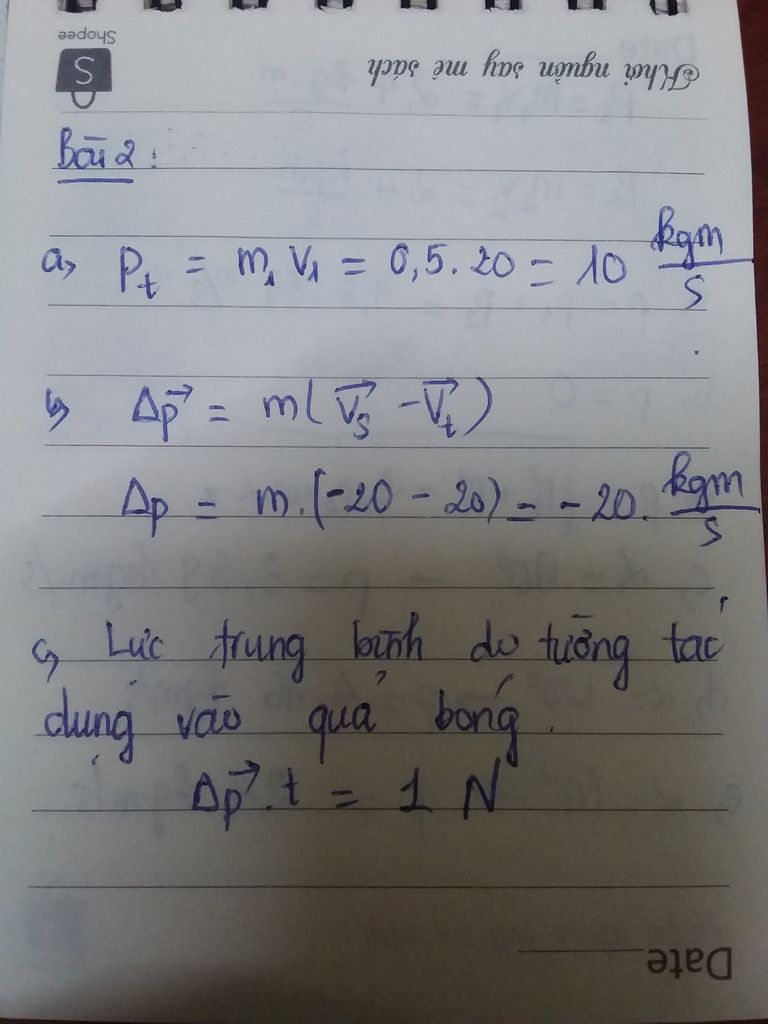 Shopee
S
Khơi nguồn say mê sách
Bài 2:
a, Pt = m1 V1 = 0,5 . 20 = 10 kgm/s
b, Δp⃗ = m( V⃗s - V⃗t )
Δp = m.(-20 - 20) = - 20. kgm/s
c, Lực trung bình do tường tác
dụng vào quả bóng.
Δp⃗ . t = 1 N
Date